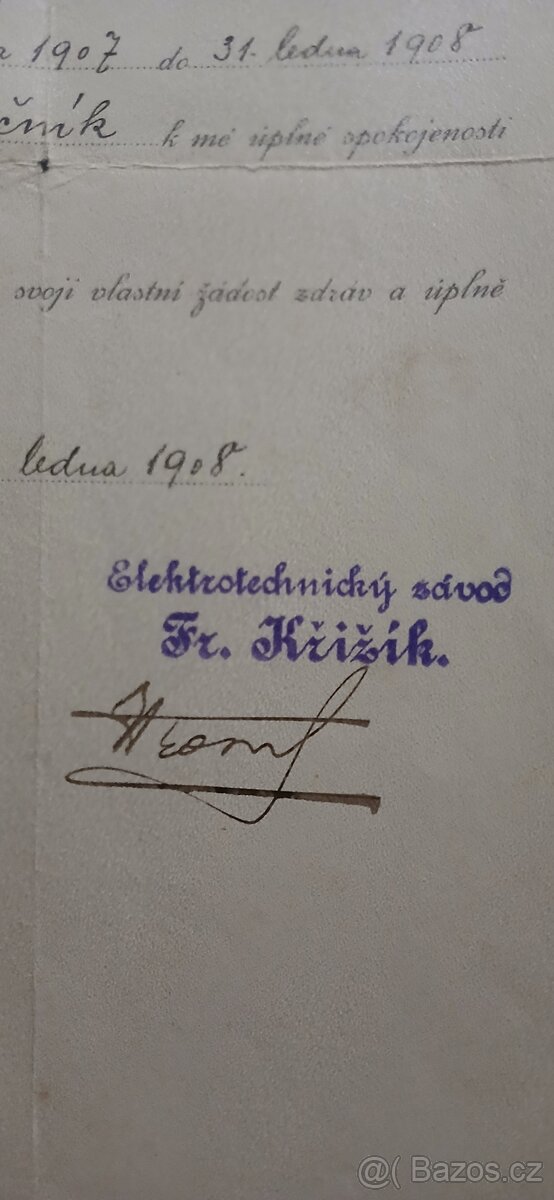 a 1907 do 31. ledna 1908
čník k mé úplné spokojenosti
svoji vlastní žádost zdráv a úplně
ledna 1908.
Elektrotechnický závod
Fr. Křižík.
@( Bazos.cz